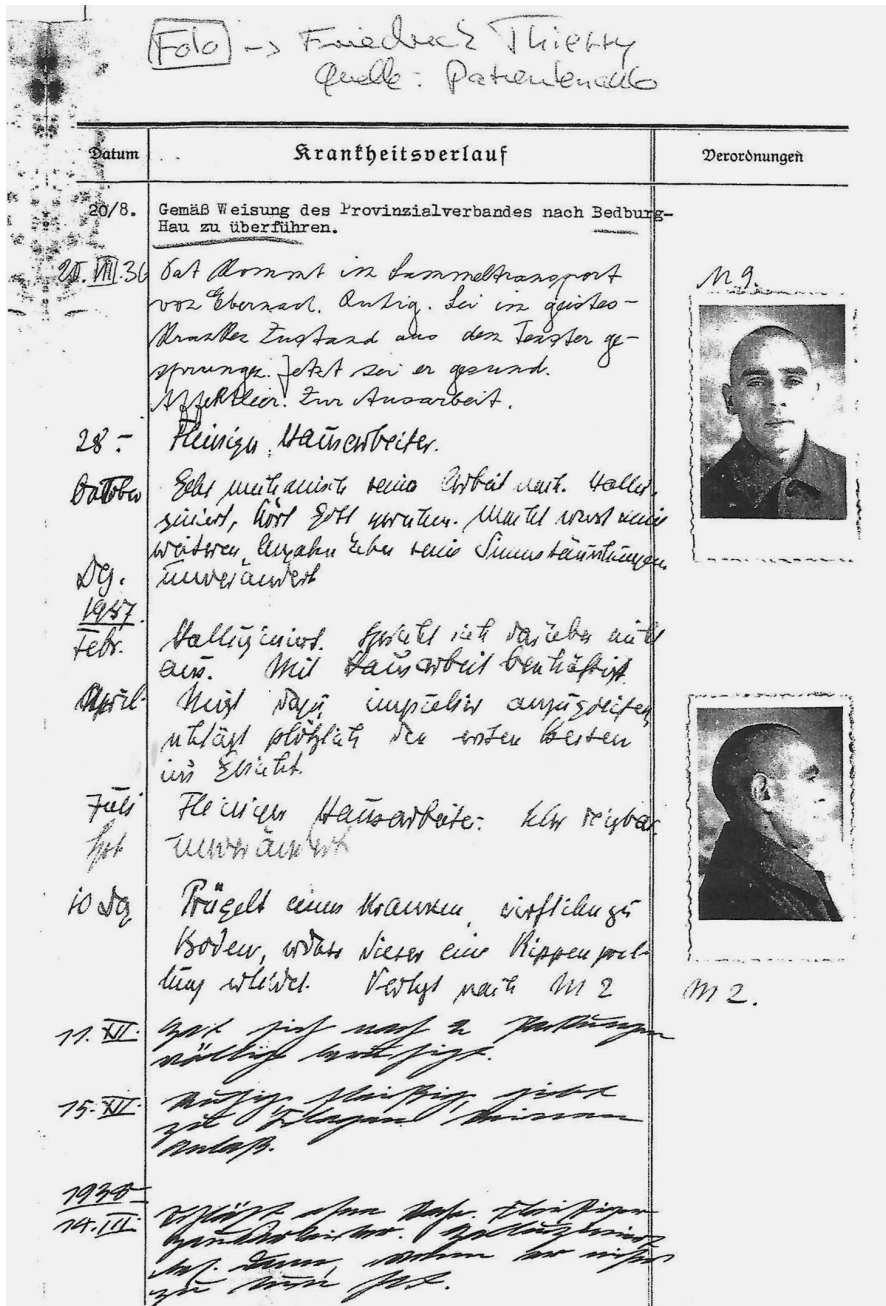 Foto -> Friedrich Thierry
Quelle: Patientenakte
Datum
Krankheitsverlauf
Verordnungen
20/8. Gemäß Weisung des Provinzialverbandes nach Bedburg-
Hau zu überführen.
Pat kommt im Sammeltransport
von Ebernach. Ruhig. Sei im geistes-
kranken Zustand aus dem Fenster ge-
sprungen. Jetzt sei er gesund.
Zur Ausarbeit.
M 9.
28 - Fleissiger Hausarbeiter.
Oktober Geht mechanisch seiner Arbeit nach. Hallu-
ziniert, hört Gott sprechen. Macht sonst keine
weiteren Angaben über seine Sinnestäuschungen.
Dz. unverändert
1937.
Febr. Halluziniert. Spricht sich darüber nicht
aus. Mit Hausarbeit beschäftigt.
April - Neigt dazu impulsiv anzugreifen,
schlägt plötzlich den ersten besten
ins Gesicht.
Juli Fleissiger Hausarbeiter. Sehr reizbar.
Spt unverändert
10 Dz Prügelt einen Kranken, wirft ihn zu
Boden, sodass dieser eine Rippenprel-
lung erleidet. Verlegt nach M 2
M 2.
11. XII. Hat sich nach 2 Packungen
völlig beruhigt.
15. XII. Ruhig, fleißig, gibt
zu Klagen keinen
Anlaß.
1938
14. III.
zu tun hat.